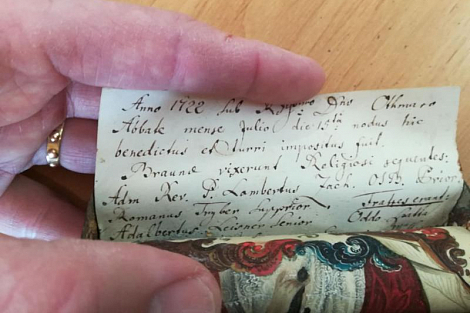 Anno 1722 sub Rssimo Dno Othmaro
Abbate mense Julio die 15ta nodus hic
benedictus et turri impositus fuit.
Braunae vixerunt Religiosi sequentes:
Adm Rev. P Lambertus Zach. OSB. Prior.
Romanus Superior, fratres erant:
Adalbertus senior Otto